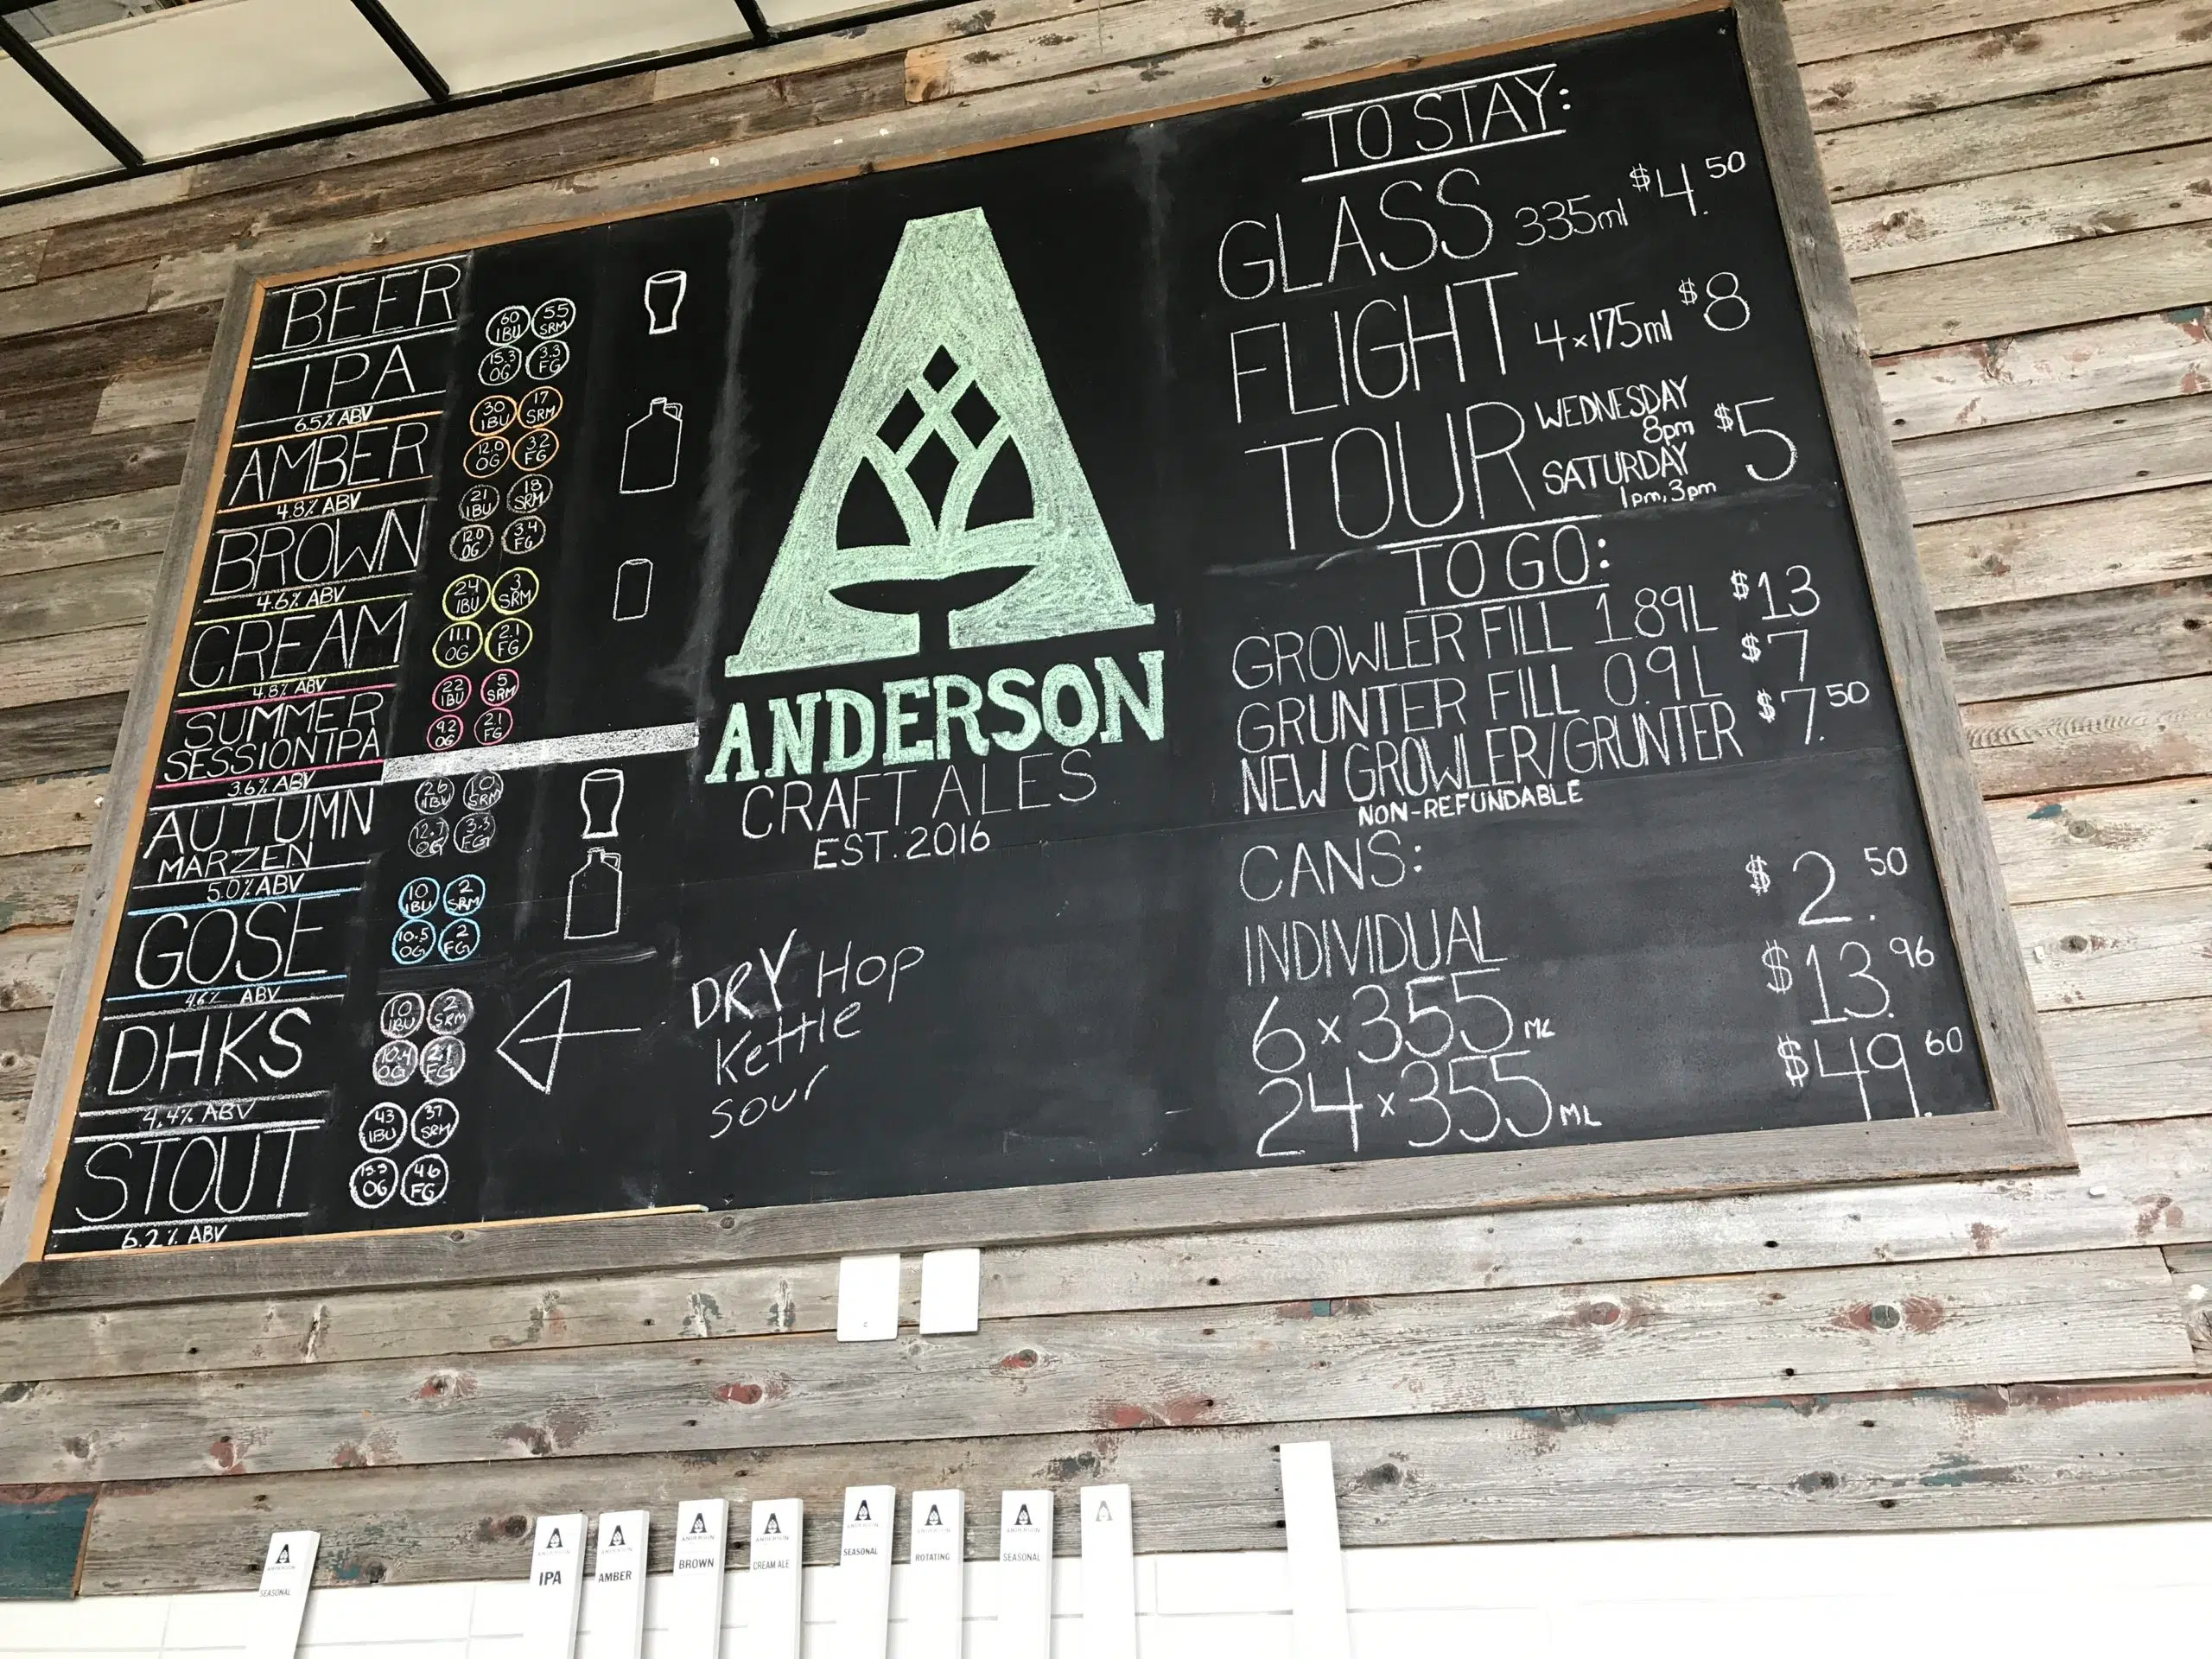 BEER
IPA
60 IBU
5.5 SRM
15.3 OG
3.3 FG
6.5% ABV
AMBER
30 IBU
17 SRM
12.0 OG
3.2 FG
4.8% ABV
BROWN
21 IBU
18 SRM
12.0 OG
3.4 FG
4.6% ABV
CREAM
24 IBU
3 SRM
11.1 OG
2.1 FG
4.8% ABV
SUMMER
SESSION IPA
22 IBU
5 SRM
9.2 OG
2.1 FG
3.6% ABV
AUTUMN
MARZEN
26 IBU
10 SRM
12.7 OG
3.3 FG
5.0% ABV
GOSE
10 IBU
2 SRM
10.5 OG
2 FG
4.6% ABV
DHKS
10 IBU
2 SRM
10.4 OG
2.1 FG
4.4% ABV
STOUT
43 IBU
37 SRM
OG
4.6 FG
6.2% ABV
ANDERSON
CRAFT ALES
EST. 2016
DRY HOP
Kettle
Sour
TO STAY:
GLASS 335ml $4.50
FLIGHT 4x175ml $8
TOUR WEDNESDAY
8pm
SATURDAY
1pm, 3pm
$5
TO GO:
GROWLER FILL 1.89L $13
GRUNTER FILL 0.9L $7
NEW GROWLER/GRUNTER $7.50
NON-REFUNDABLE
CANS:
INDIVIDUAL $2.50
6x355ML $13.96
24x355ML $49.60
ANDERSON
SEASONAL
ANDERSON
IPA
ANDERSON
AMBER
ANDERSON
BROWN
ANDERSON
CREAM ALE
ANDERSON
SEASONAL
ANDERSON
ROTATING
ANDERSON
SEASONAL